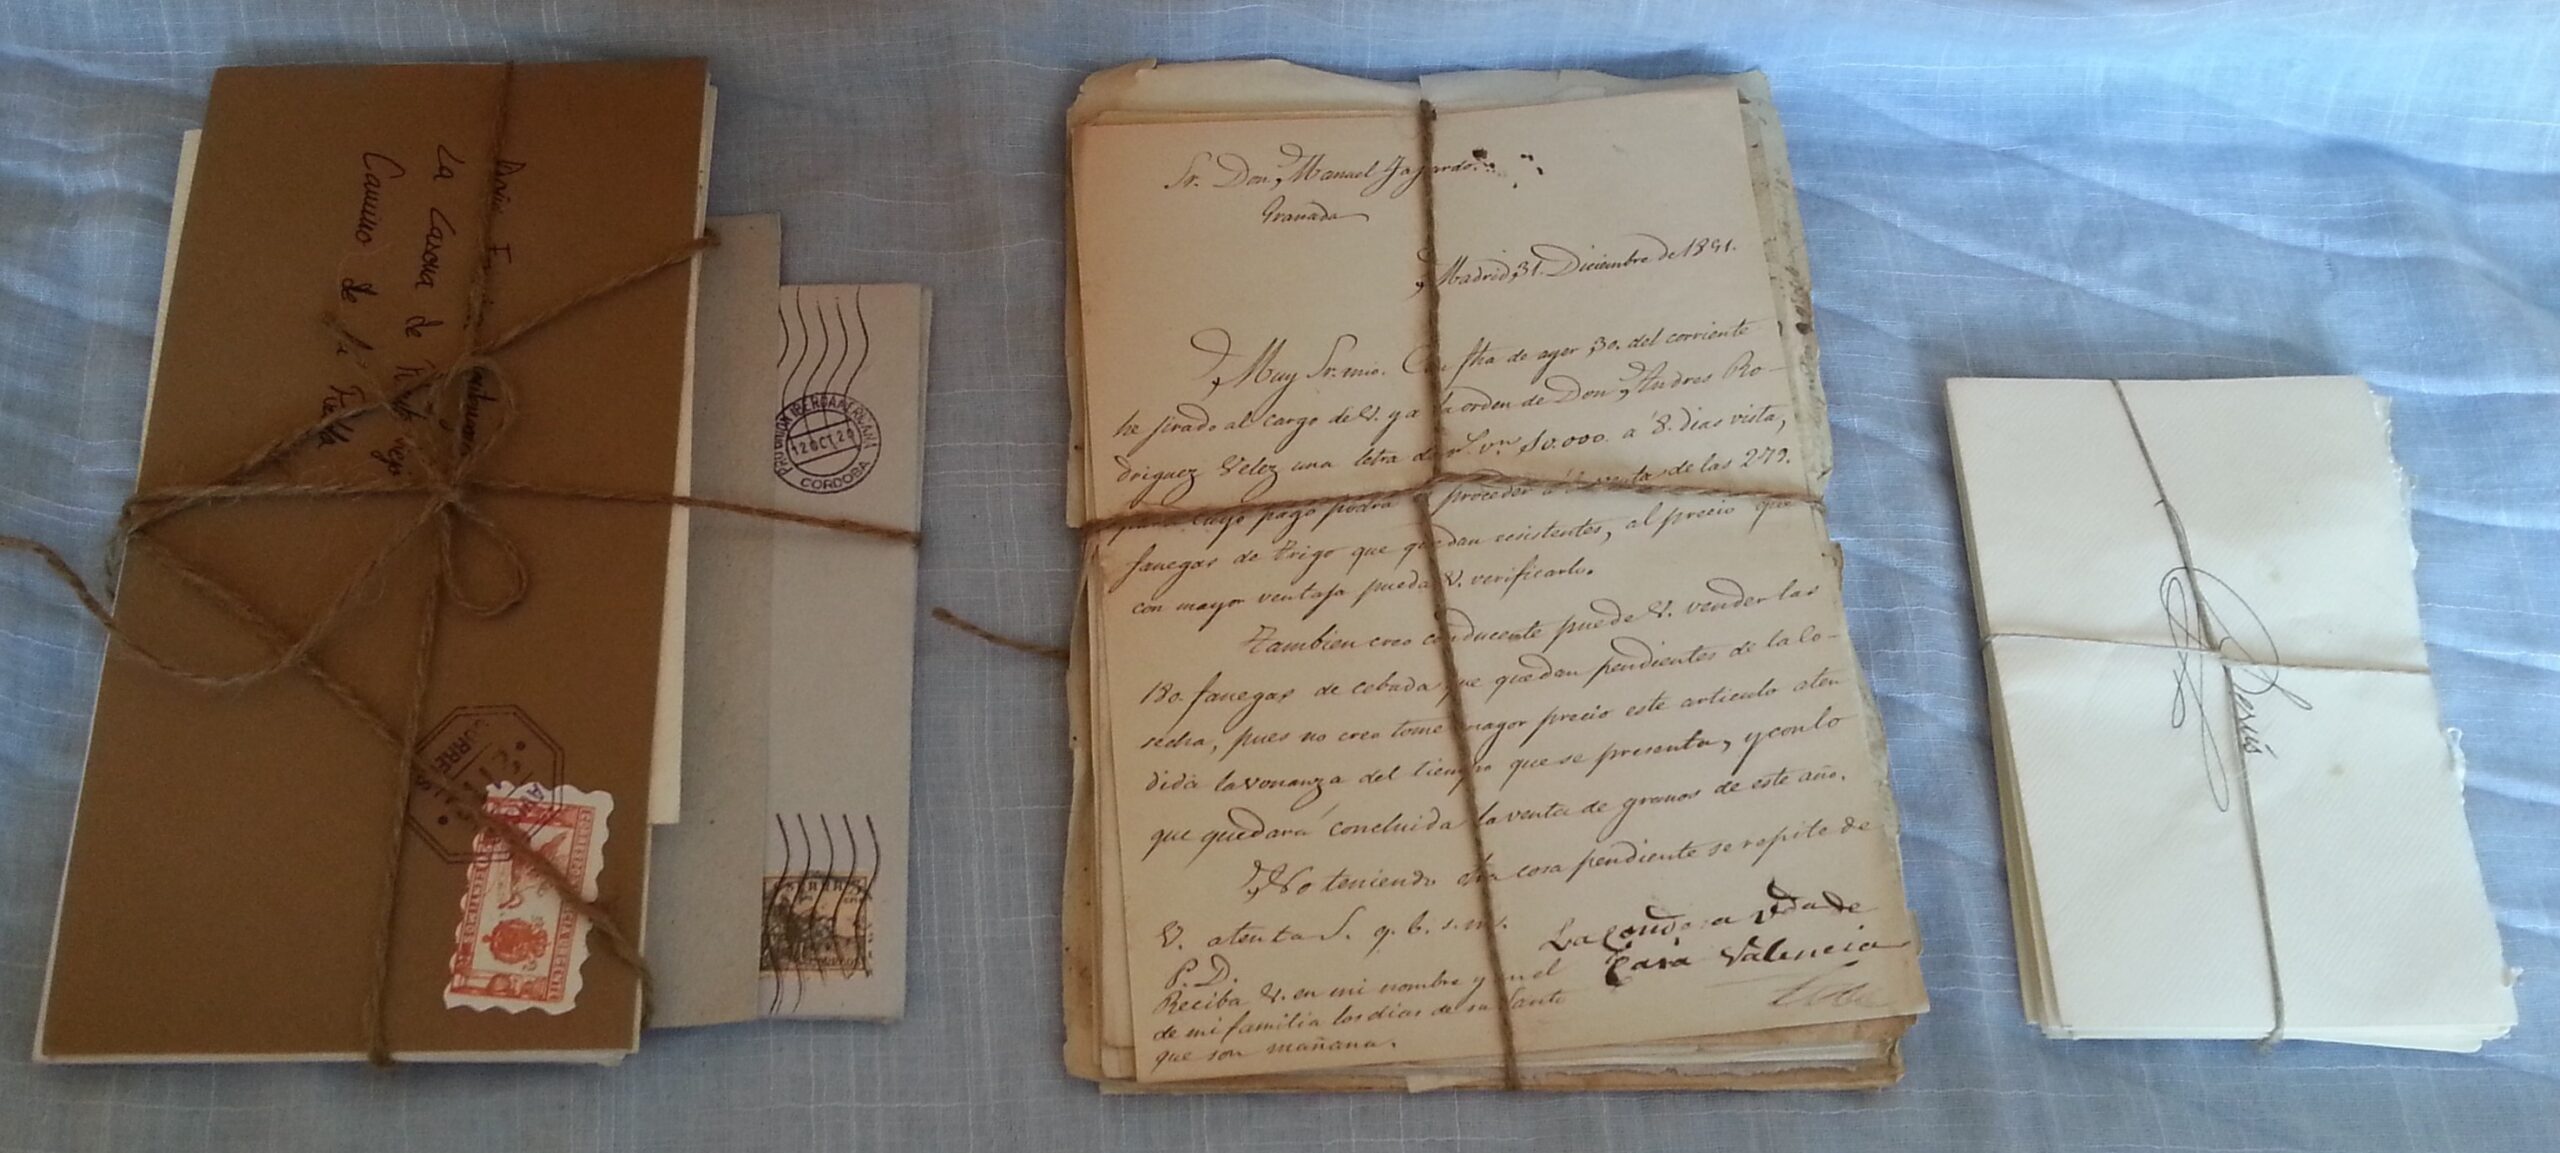 La Casona de
Camino de la
PRO UNION IBEROAMERICANA
12 OCT 20
CORDOBA
CORREOS
Sr. Don Manuel Fajardo.
Granada
Madrid, 31. Diciembre de 1851.
Muy Sr. mio. Con fha de ayer 30. del corriente
he jirado al cargo de V. y a la orden de Don Andres Ro-
driguez Velez una letra de r.s v.n 10.000. á 8. dias vista,
para cuyo pago podrá proceder á la venta de las 279.
fanegas de trigo que quedan ecsistentes, al precio que
con mayor ventaja pueda V. verificarlo.
Tambien creo conducente puede V. vender las
180. fanegas de cebada que quedan pendientes de la co-
secha, pues no creo tome mayor precio este articulo aten
dida la vonanza del tiempo que se presenta, y con lo
que quedará concluida la venta de granos de este año.
No teniendo otra cosa pendiente se repite de
V. atenta S. q. b. s. m.
La Condesa Vda de
Casa Valencia
P. D.
Reciba V. en mi nombre y en el
de mi familia los dias de su Santo
que son mañana.